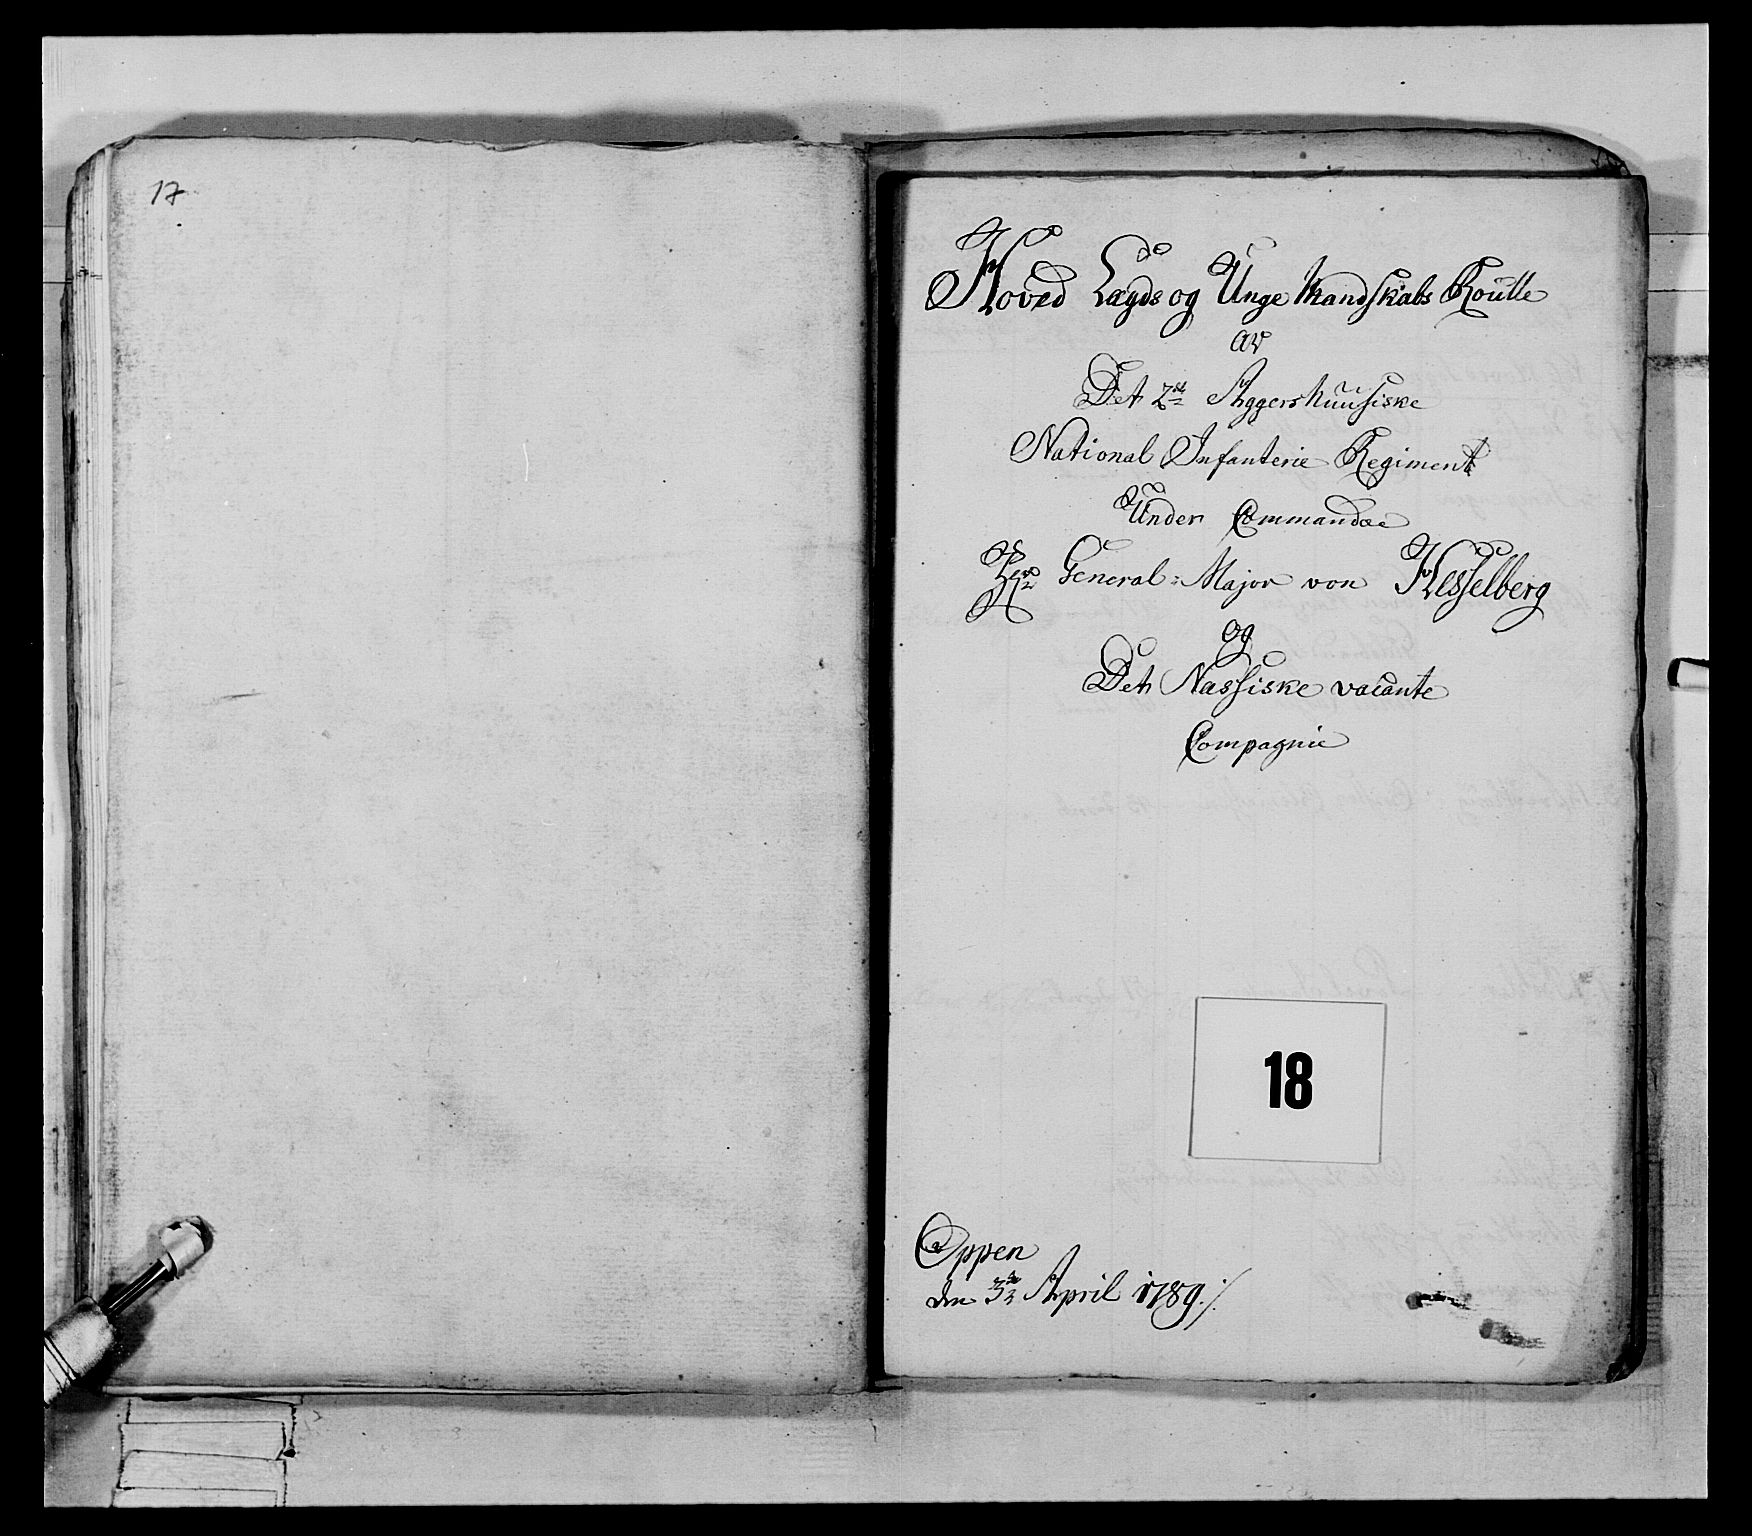 17
Hoved Lægds og Unge Mandskabs Roulle
av
Det 2det Aggershuusiske
National Infanterie Regiment
Under Commandoe
Hrr General-Major von Hesselberg
og
Det Næssiske vacante
Compagnie
18
Oppen
den 3de April 1789 ./.